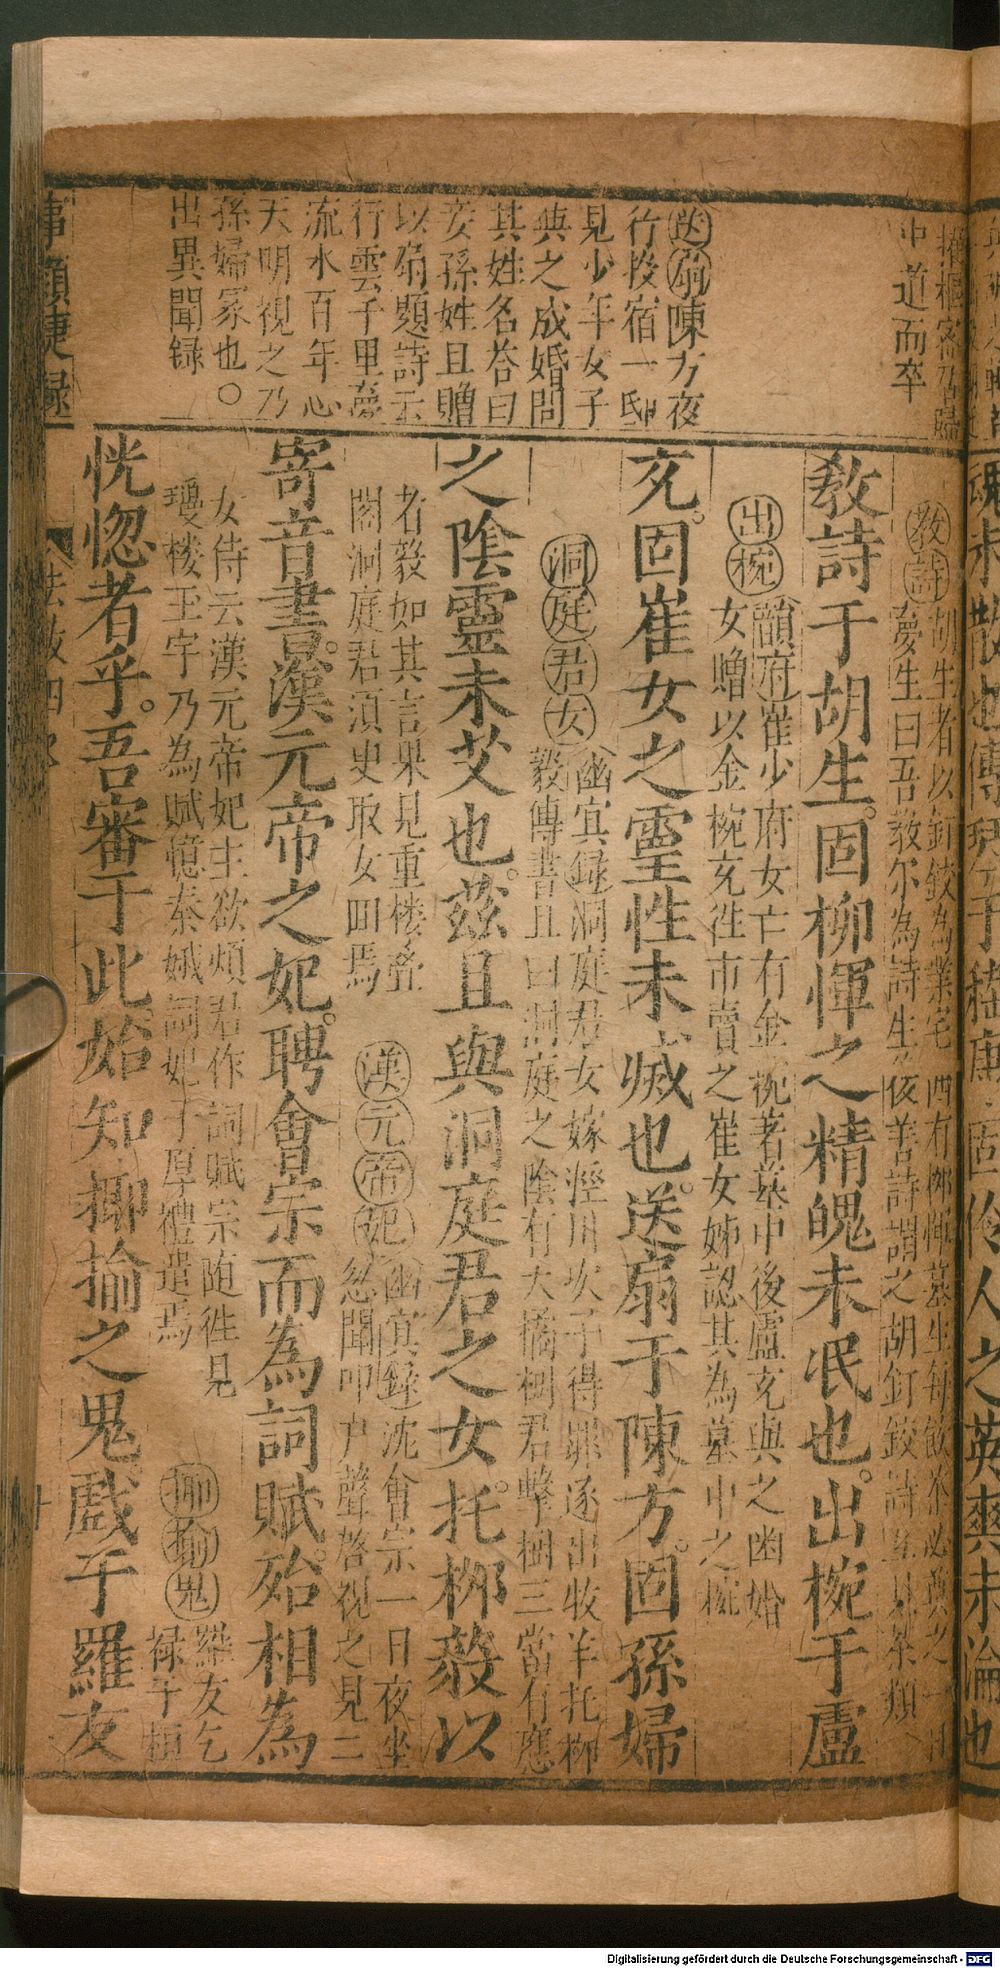 中道而卒
送扇陳方夜
行投宿一邸
見少年女子
與之成婚問
其姓名荅曰
妾孫姓且贈
以扇題詩云
行雲千里夢
流水百年心
天明視之乃
孫婦冢也○
出異聞録
教詩胡生者以釘鉸為業宅西有柳惲墓生每飲茶必奠之一日
夢生曰吾教尔為詩生後善詩謂之胡釘鉸詩
教詩于胡生。固柳惲之精魄未泯也。出椀于盧
出椀崔少府女亡有金椀著墓中後盧充與之幽婚
女贈以金椀充往市賣之崔女姊認其為墓中之椀
充。固崔女之靈性未滅也。送扇于陳方。固孫婦
洞庭君女幽冥録洞庭君女嫁涇川次子得罪逐出牧羊托柳
毅傳書且曰洞庭之陰有大橘樹君擊樹三當有應
之陰靈未艾也。茲且與洞庭君之女。托柳毅以
者毅如其言果見重楼叠
閣洞庭君須史取女囬焉
漢元帝妃幽冥録沈會宗一日夜坐
忽聞叩户聲啓視之見二
寄音書。㬎漢元帝之妃。聘會宗而為詞賦。殆相為
女侍云漢元帝妃主欲煩君作詞賦宗随徃見
瓊楼玉宇乃為賦憶秦娥詞妃子厚禮遣焉
揶揄鬼羅友乞
禄于桓
恍惚者乎。吾審于此。始知揶揄之鬼戲于羅友
事類捷録
Digitalisierung gefördert durch die Deutsche Forschungsgemeinschaft - DFG